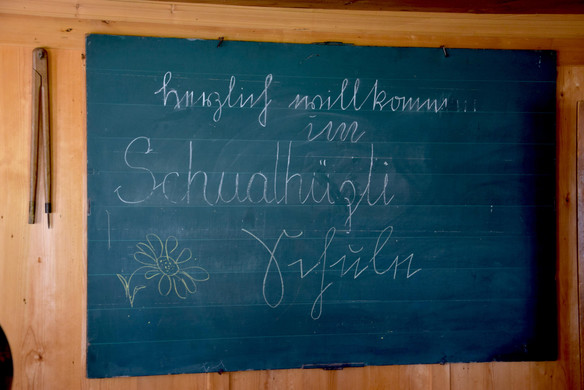 herzlich willkomm !!!
im
Schualhüzli
Schule